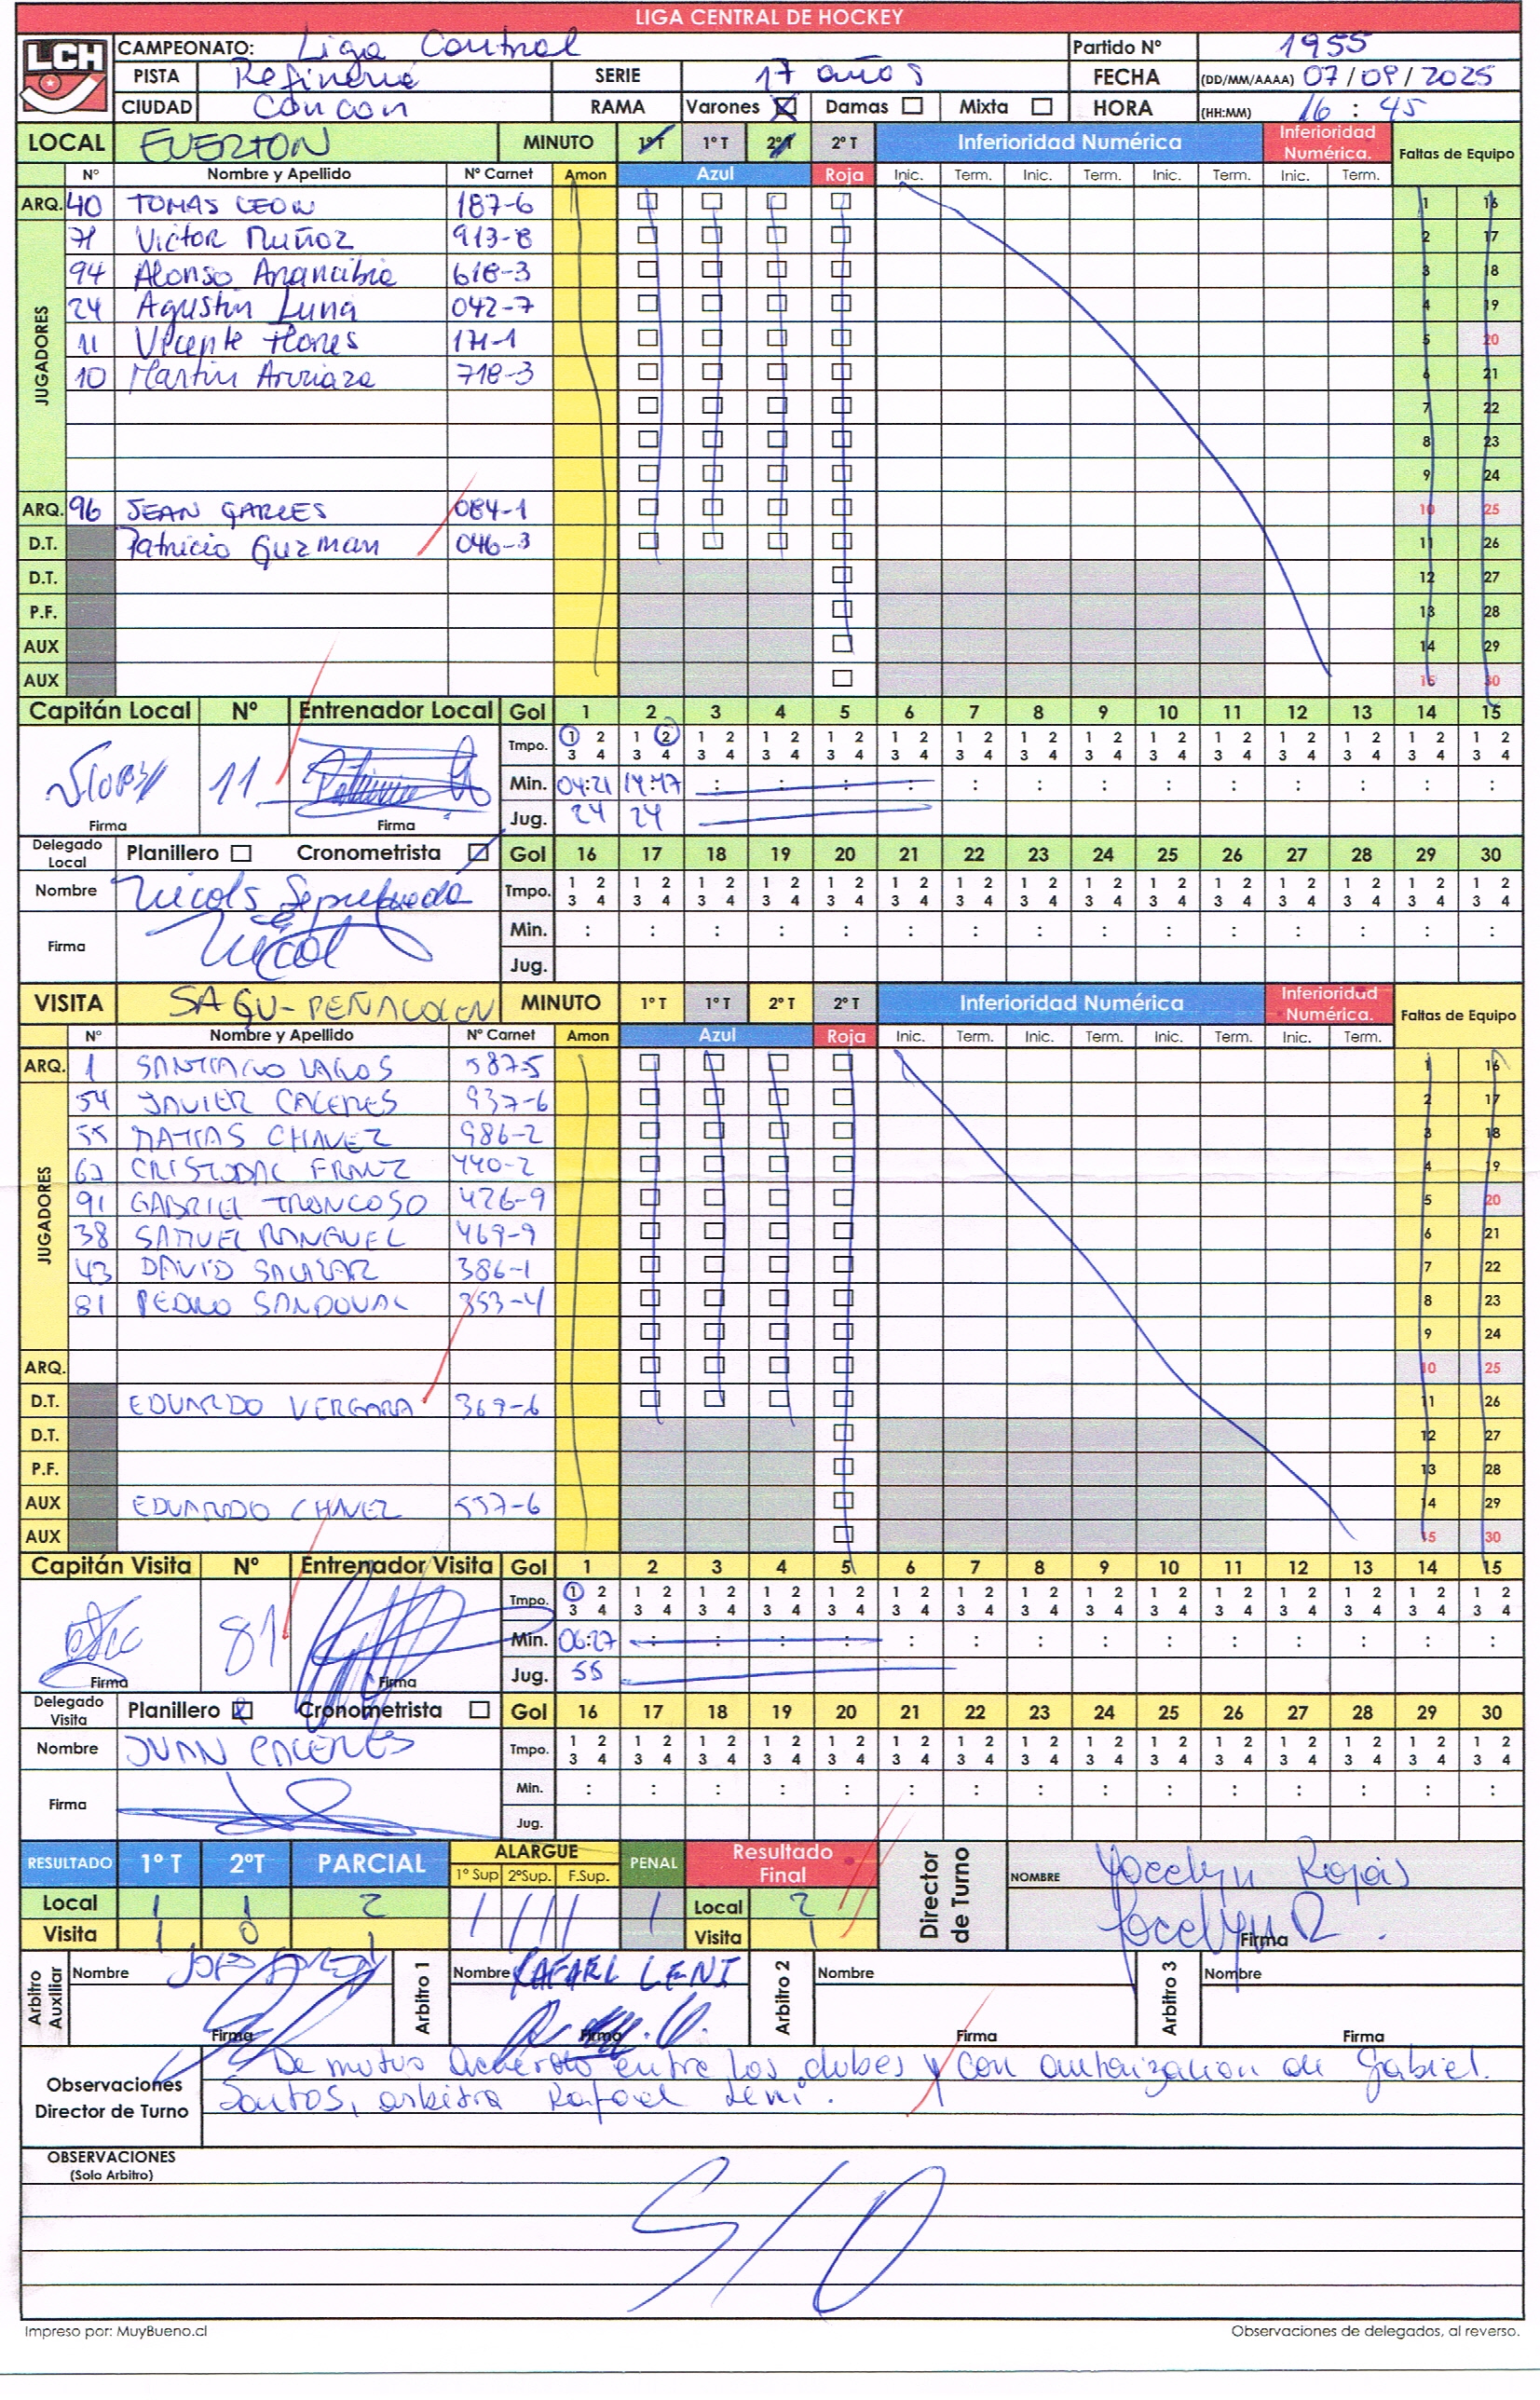 LIGA CENTRAL DE HOCKEY
LCH
CAMPEONATO: Liga Central Partido Nº 1955
PISTA Refineria SERIE 17 años FECHA (DD/MM/AAAA) 07/09/2025
CIUDAD Concon RAMA Varones Damas Mixta HORA (HH:MM) 16:45
LOCAL EVERTON MINUTO 1ºT 1ºT 2ºT 2ºT Inferioridad Numérica Inferioridad Numérica. Faltas de Equipo
Nº Nombre y Apellido Nº Carnet Amon Azul Roja Inic. Term. Inic. Term. Inic. Term. Inic. Term.
ARQ. 40 TOMAS LEON 187-6 1 16
JUGADORES
71 Victor Muñoz 913-8 2 17
94 Alonso Anancibia 618-3 3 18
24 Agustin Luna 042-7 4 19
11 Vicente Flores 171-1 5 20
10 Martin Arriaza 718-3 6 21
7 22
8 23
9 24
ARQ. 96 JEAN GARCES 084-1 10 25
D.T. Patricio Guzman 046-3 11 26
D.T. 12 27
P.F. 13 28
AUX 14 29
AUX 15 30
Capitán Local Nº Entrenador Local Gol 1 2 3 4 5 6 7 8 9 10 11 12 13 14 15
Tmpo. 1 2 1 2 1 2 1 2 1 2 1 2 1 2 1 2 1 2 1 2 1 2 1 2 1 2 1 2 1 2
3 4 3 4 3 4 3 4 3 4 3 4 3 4 3 4 3 4 3 4 3 4 3 4 3 4 3 4 3 4
11 Min. 04:21 14:47 : : : : : : : : : : : : :
Firma Firma Jug. 24 24
Delegado Local Planillero Cronometrista Gol 16 17 18 19 20 21 22 23 24 25 26 27 28 29 30
Nombre Nicols Sepulveda Tmpo. 1 2 1 2 1 2 1 2 1 2 1 2 1 2 1 2 1 2 1 2 1 2 1 2 1 2 1 2 1 2
3 4 3 4 3 4 3 4 3 4 3 4 3 4 3 4 3 4 3 4 3 4 3 4 3 4 3 4 3 4
Firma Min. : : : : : : : : : : : : : : :
Jug.
VISITA SAGU-PEÑALOLEN MINUTO 1ºT 1ºT 2ºT 2ºT Inferioridad Numérica Inferioridad Numérica. Faltas de Equipo
Nº Nombre y Apellido Nº Carnet Amon Azul Roja Inic. Term. Inic. Term. Inic. Term. Inic. Term.
ARQ. 1 SANTIAGO LAGOS 587-5 1 16
JUGADORES
54 JAVIER CACERES 937-6 2 17
55 MATIAS CHAVEZ 986-2 3 18
67 CRISTOBAL FRANZ 440-2 4 19
91 GABRIEL TRONCOSO 426-9 5 20
38 SAMUEL RANGUEL 469-9 6 21
43 DAVID SALAZAR 386-1 7 22
81 PEDRO SANDOVAL 353-4 8 23
9 24
ARQ. 10 25
D.T. EDUARDO VERGARA 369-6 11 26
D.T. 12 27
P.F. 13 28
AUX EDUARDO CHAVEZ 557-6 14 29
AUX 15 30
Capitán Visita Nº Entrenador Visita Gol 1 2 3 4 5 6 7 8 9 10 11 12 13 14 15
Tmpo. 1 2 1 2 1 2 1 2 1 2 1 2 1 2 1 2 1 2 1 2 1 2 1 2 1 2 1 2 1 2
3 4 3 4 3 4 3 4 3 4 3 4 3 4 3 4 3 4 3 4 3 4 3 4 3 4 3 4 3 4
81 Min. 06:27 : : : : : : : : : : : : : :
Firma Firma Jug. 55
Delegado Visita Planillero Cronometrista Gol 16 17 18 19 20 21 22 23 24 25 26 27 28 29 30
Nombre JUAN CACERES Tmpo. 1 2 1 2 1 2 1 2 1 2 1 2 1 2 1 2 1 2 1 2 1 2 1 2 1 2 1 2 1 2
3 4 3 4 3 4 3 4 3 4 3 4 3 4 3 4 3 4 3 4 3 4 3 4 3 4 3 4 3 4
Firma Min. : : : : : : : : : : : : : : :
Jug.
RESULTADO 1ºT 2ºT PARCIAL ALARGUE 1ºSup 2ºSup. F.Sup. PENAL Resultado Final Director de Turno NOMBRE Yocelyn Rojas
Local 1 1 2 Local 2
Visita 1 0 1 Visita 1 Yocelyn R. Firma
Arbitro Auxiliar Nombre Arbitro 1 Nombre RAFAEL LENI Arbitro 2 Nombre Arbitro 3 Nombre
Firma Firma Firma Firma
Observaciones Director de Turno De mutuo acuerdo entre los clubes y con autorizacion de Gabriel.
Santos, arbitra Rafael Leni.
OBSERVACIONES
(Solo Arbitro)
S/O
Impreso por: MuyBueno.cl Observaciones de delegados, al reverso.